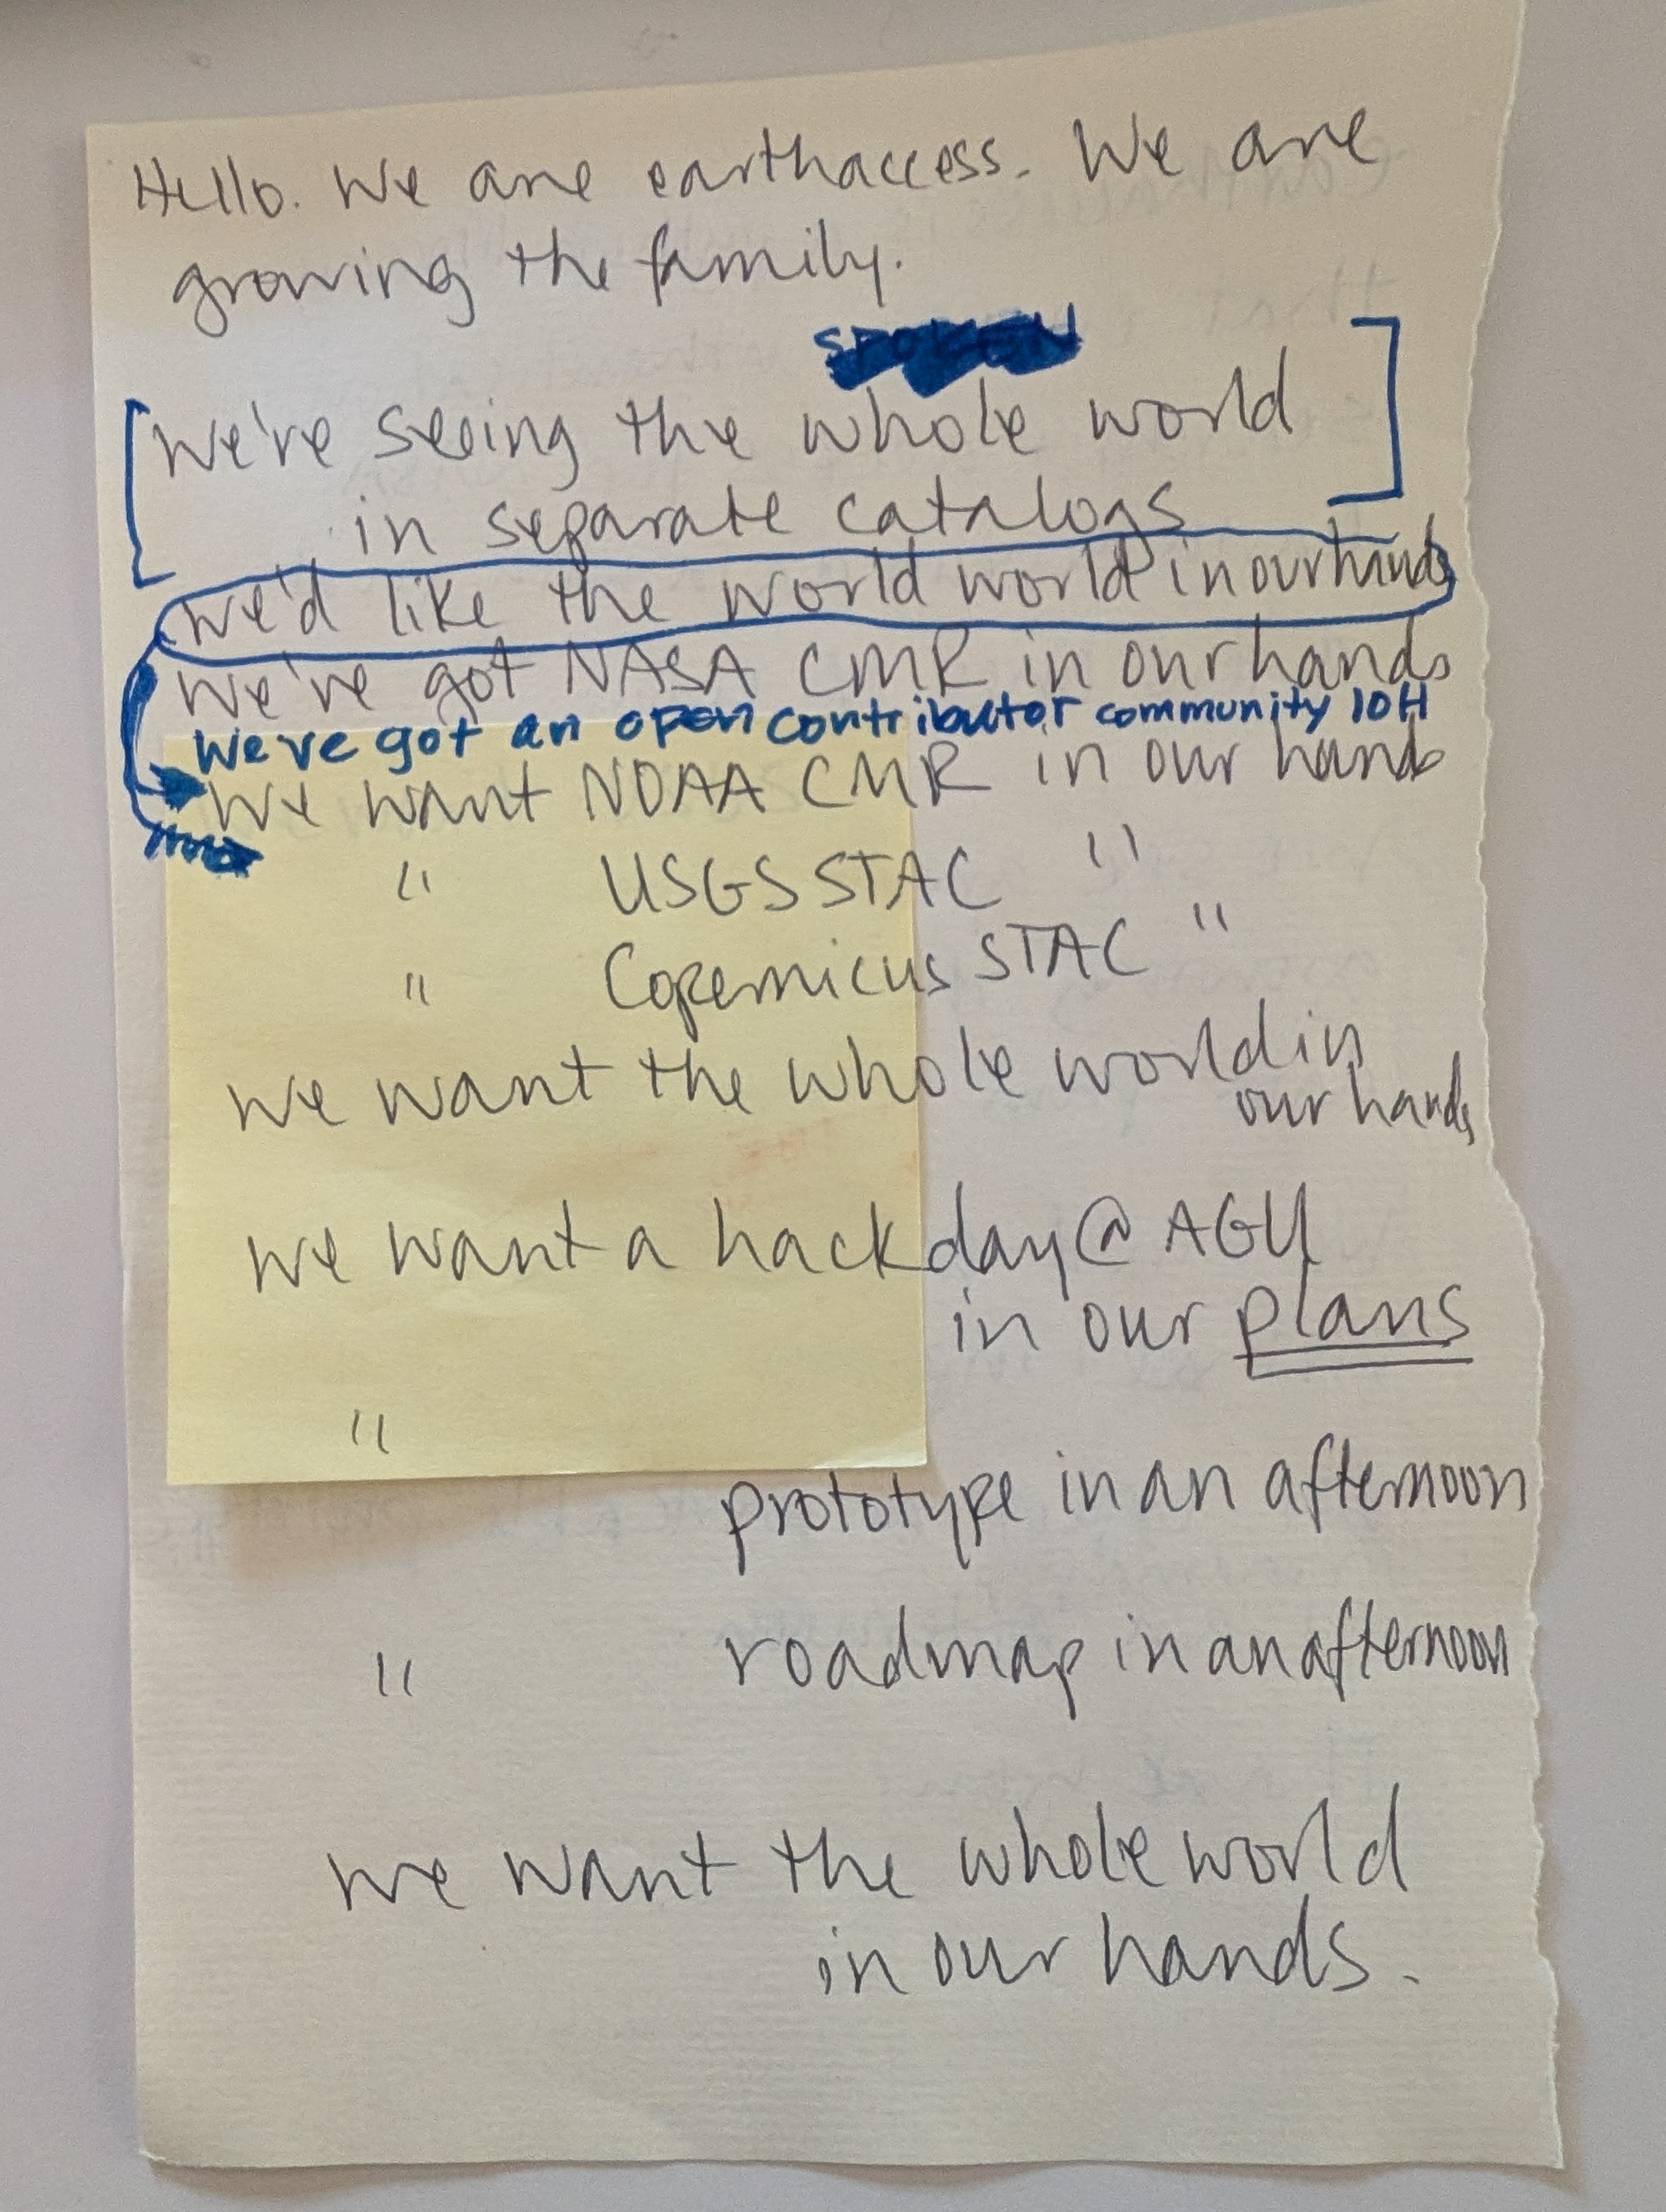 Hello. We are earthaccess. We are
growing the family.
SPOKEN
We're seeing the whole world
in separate catalogs
we'd like the world world in our hands
We've got NASA CMR in our hands
We've got an open contributor community IOH
We want NOAA CMR in our hands
" USGS STAC "
" Copernicus STAC "
we want the whole world in
our hands
we want a hackday @ AGU
in our plans
"
prototype in an afternoon
" roadmap in an afternoon
we want the whole world
in our hands.